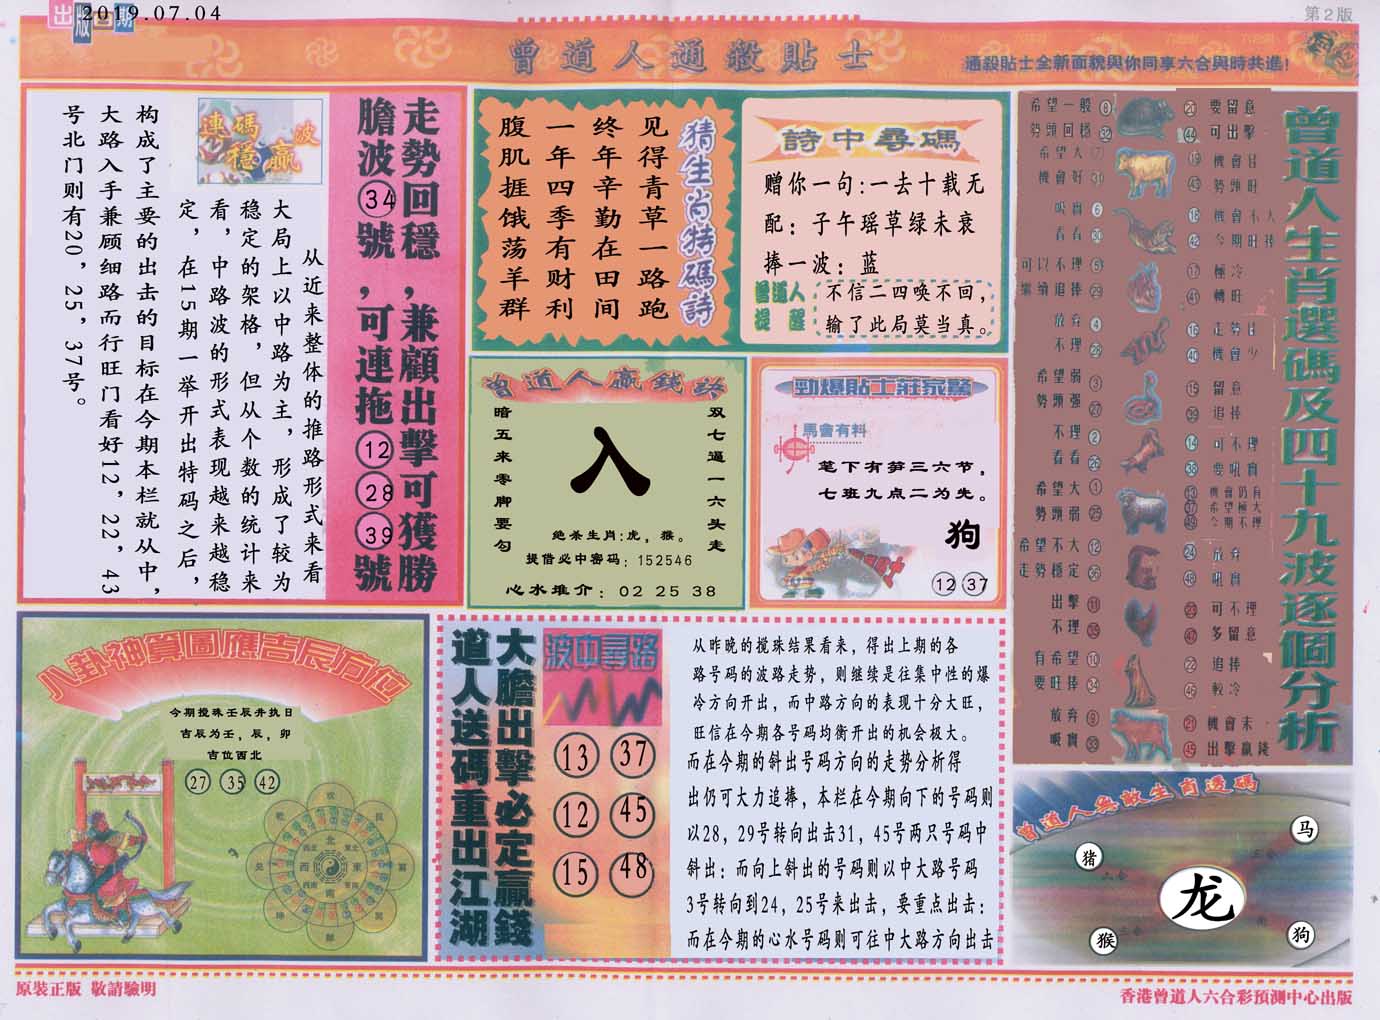 出版日期
2019.07.04
第2版
曾道人通殺貼士
通殺貼士全新面貌與你同享六合與時共進!
走勢回穩,兼顧出擊可獲勝
膽波34號,可連拖12 28 39號
連碼波
穩贏
从近来整体的推路形式来看
大局上以中路为主,形成了较为
稳定的架格,但从个数的统计来
看,中路波的形式表现越来越稳
定,在15期一举开出特码之后,
构成了主要的出击的目标在今期本栏就从中,
大路入手兼顾细路而行旺门看好12,22,43
号北门则有20,25,37号。
猜生肖特碼詩
见得青草一路跑
终年辛勤在田间
一年四季有财利
腹肌捱饿荡羊群
詩中尋碼
赠你一句:一去十载无
配:子午瑶草绿未衰
捧一波:蓝
曾道人
提醒
不信二四唤不回,
输了此局莫当真。
曾道人贏錢訣
双七逼一六头走
暗五来零脚要勾
入
绝杀生肖:虎,猴。
提借必中密码:152546
心水推介:02 25 38
勁爆貼士莊家驚
馬會有料
笔下有笋三六节,
七班九点二为先。
狗
12 37
曾道人生肖選碼及四十九波逐個分析
希望一般 8
勢頭回穩 32
20 要留意
44 可出擊
希望大 7
機會好 31
19 機會佳
43 勢頭旺
吸實 6
看看 30
18 機會不大
42 今期旺捧
可以不理 5
繼續追捧 29
17 極冷
41 轉旺
放弃 4
不理
16 走勢佳
40 機會少
希望弱 3
勢頭强 27
15 留意
39 追捧
不理 2
看看 26
14 可不理
38 要吼實
希望大 1
勢頭弱 25
13 機會仍有
37 希望極大
49 今期不理
希望不大 12
走勢穩定 36
24 放弃
48 吼實
出擊 11
不理 35
23 可不理
47 多留意
有希望 10
要旺捧 34
22 追捧
46 較冷
放弃 9
吸實 33
21 機會末
45 出擊贏錢
八卦神算圖應吉辰方位
今期搅珠壬辰井执日
吉辰为壬,辰,卯
吉位西北
27 35 42
大膽出擊必定贏錢
道人送碼重出江湖
波中尋路
13 37
12 45
15 48
从昨晚的搅珠结果看来,得出上期的各
路号码的波路走势,则继续是往集中性的爆
冷方向开出,而中路方向的表现十分大旺,
旺信在今期各号码均衡开出的机会极大。
而在今期的斜出号码方向的走势分析得
出仍可大力追捧,本栏在今期向下的号码则
以28,29号转向出击31,45号两只号码中
斜出:而向上斜出的号码则以中大路号码
3号转向到24,25号来出击,要重点出击:
而在今期的心水号码则可往中大路方向出击
曾道人無敵生肖透碼
猪
马
龙
猴
狗
原裝正版 敬請驗明
香港曾道人六合彩預測中心出版